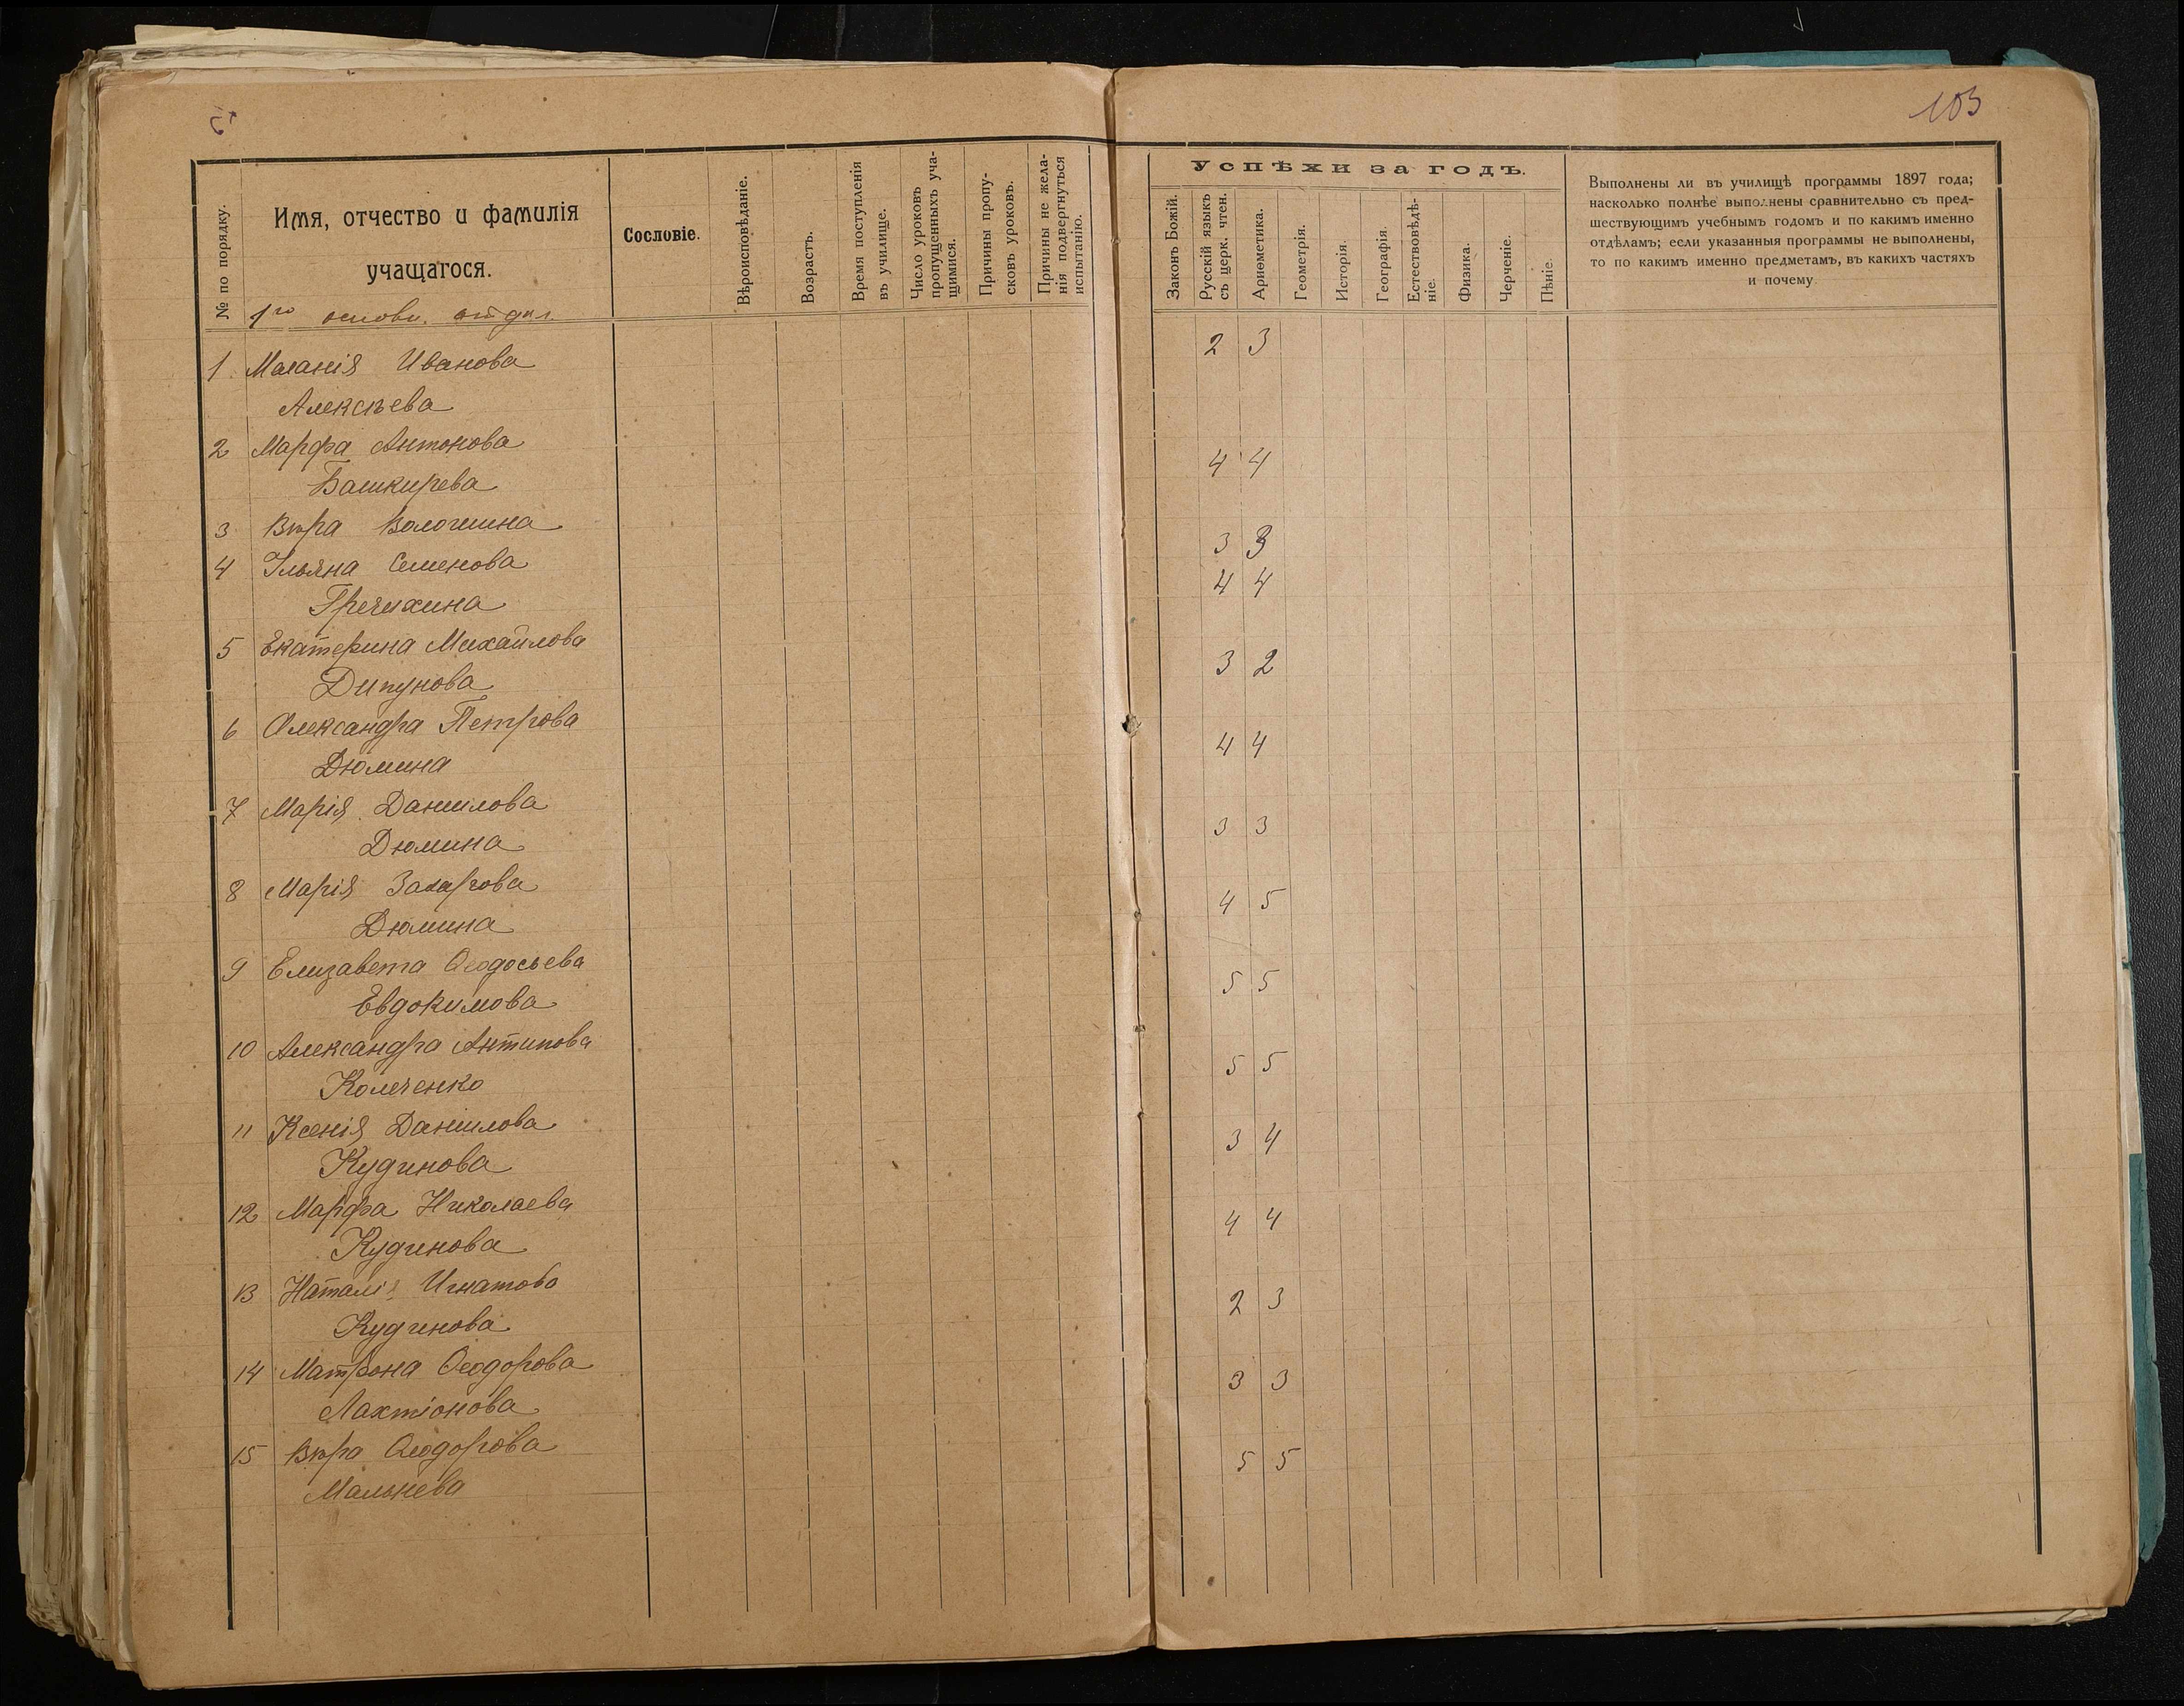 103
№ по порядку.
Имя, отчество и фамилія
учащагося.
Сословіе.
Вѣроисповѣданіе.
Возрастъ.
Время поступленія
въ училище.
Число уроковъ
пропущенныхъ уча-
щимися.
Причины пропу-
сковъ уроковъ.
Причины не жела-
нія подвергнуться
испытанію.
Успѣхи за годъ.
Законъ Божій.
Русскій языкъ
съ церк. чтен.
Ариѳметика.
Геометрія.
Исторія.
Географія.
Естествовѣдѣ-
ніе.
Физика.
Черченіе.
Пѣніе.
Выполнены ли въ училищѣ программы 1897 года;
насколько полнѣе выполнены сравнительно съ пред-
шествующимъ учебнымъ годомъ и по какимъ именно
отдѣламъ; если указанныя программы не выполнены,
то по какимъ именно предметамъ, въ какихъ частяхъ
и почему.
1го основн. отдѣл.
1 Маланія Иванова 2 3
Алексѣева
2 Марфа Антонова 4 4
Башкирева
3 Вѣра Волошина 3 3
4 Ульяна Семенова 4 4
Гречихина
5 Екатерина Михайлова 3 2
Дипунова
6 Александра Петрова 4 4
Дюмина
7 Марія Данилова 3 3
Дюмина
8 Марія Захарова 4 5
Дюмина
9 Елизавета Ѳеодосьева 5 5
Евдокимова
10 Александра Антипова 5 5
Колеченко
11 Ксенія Данилова 3 4
Кудинова
12 Марфа Николаева 4 4
Кудинова
13 Наталія Игнатова 2 3
Кудинова
14 Матрона Ѳеодорова 3 3
Лахтіонова
15 Вѣра Ѳеодорова 5 5
Мальнева